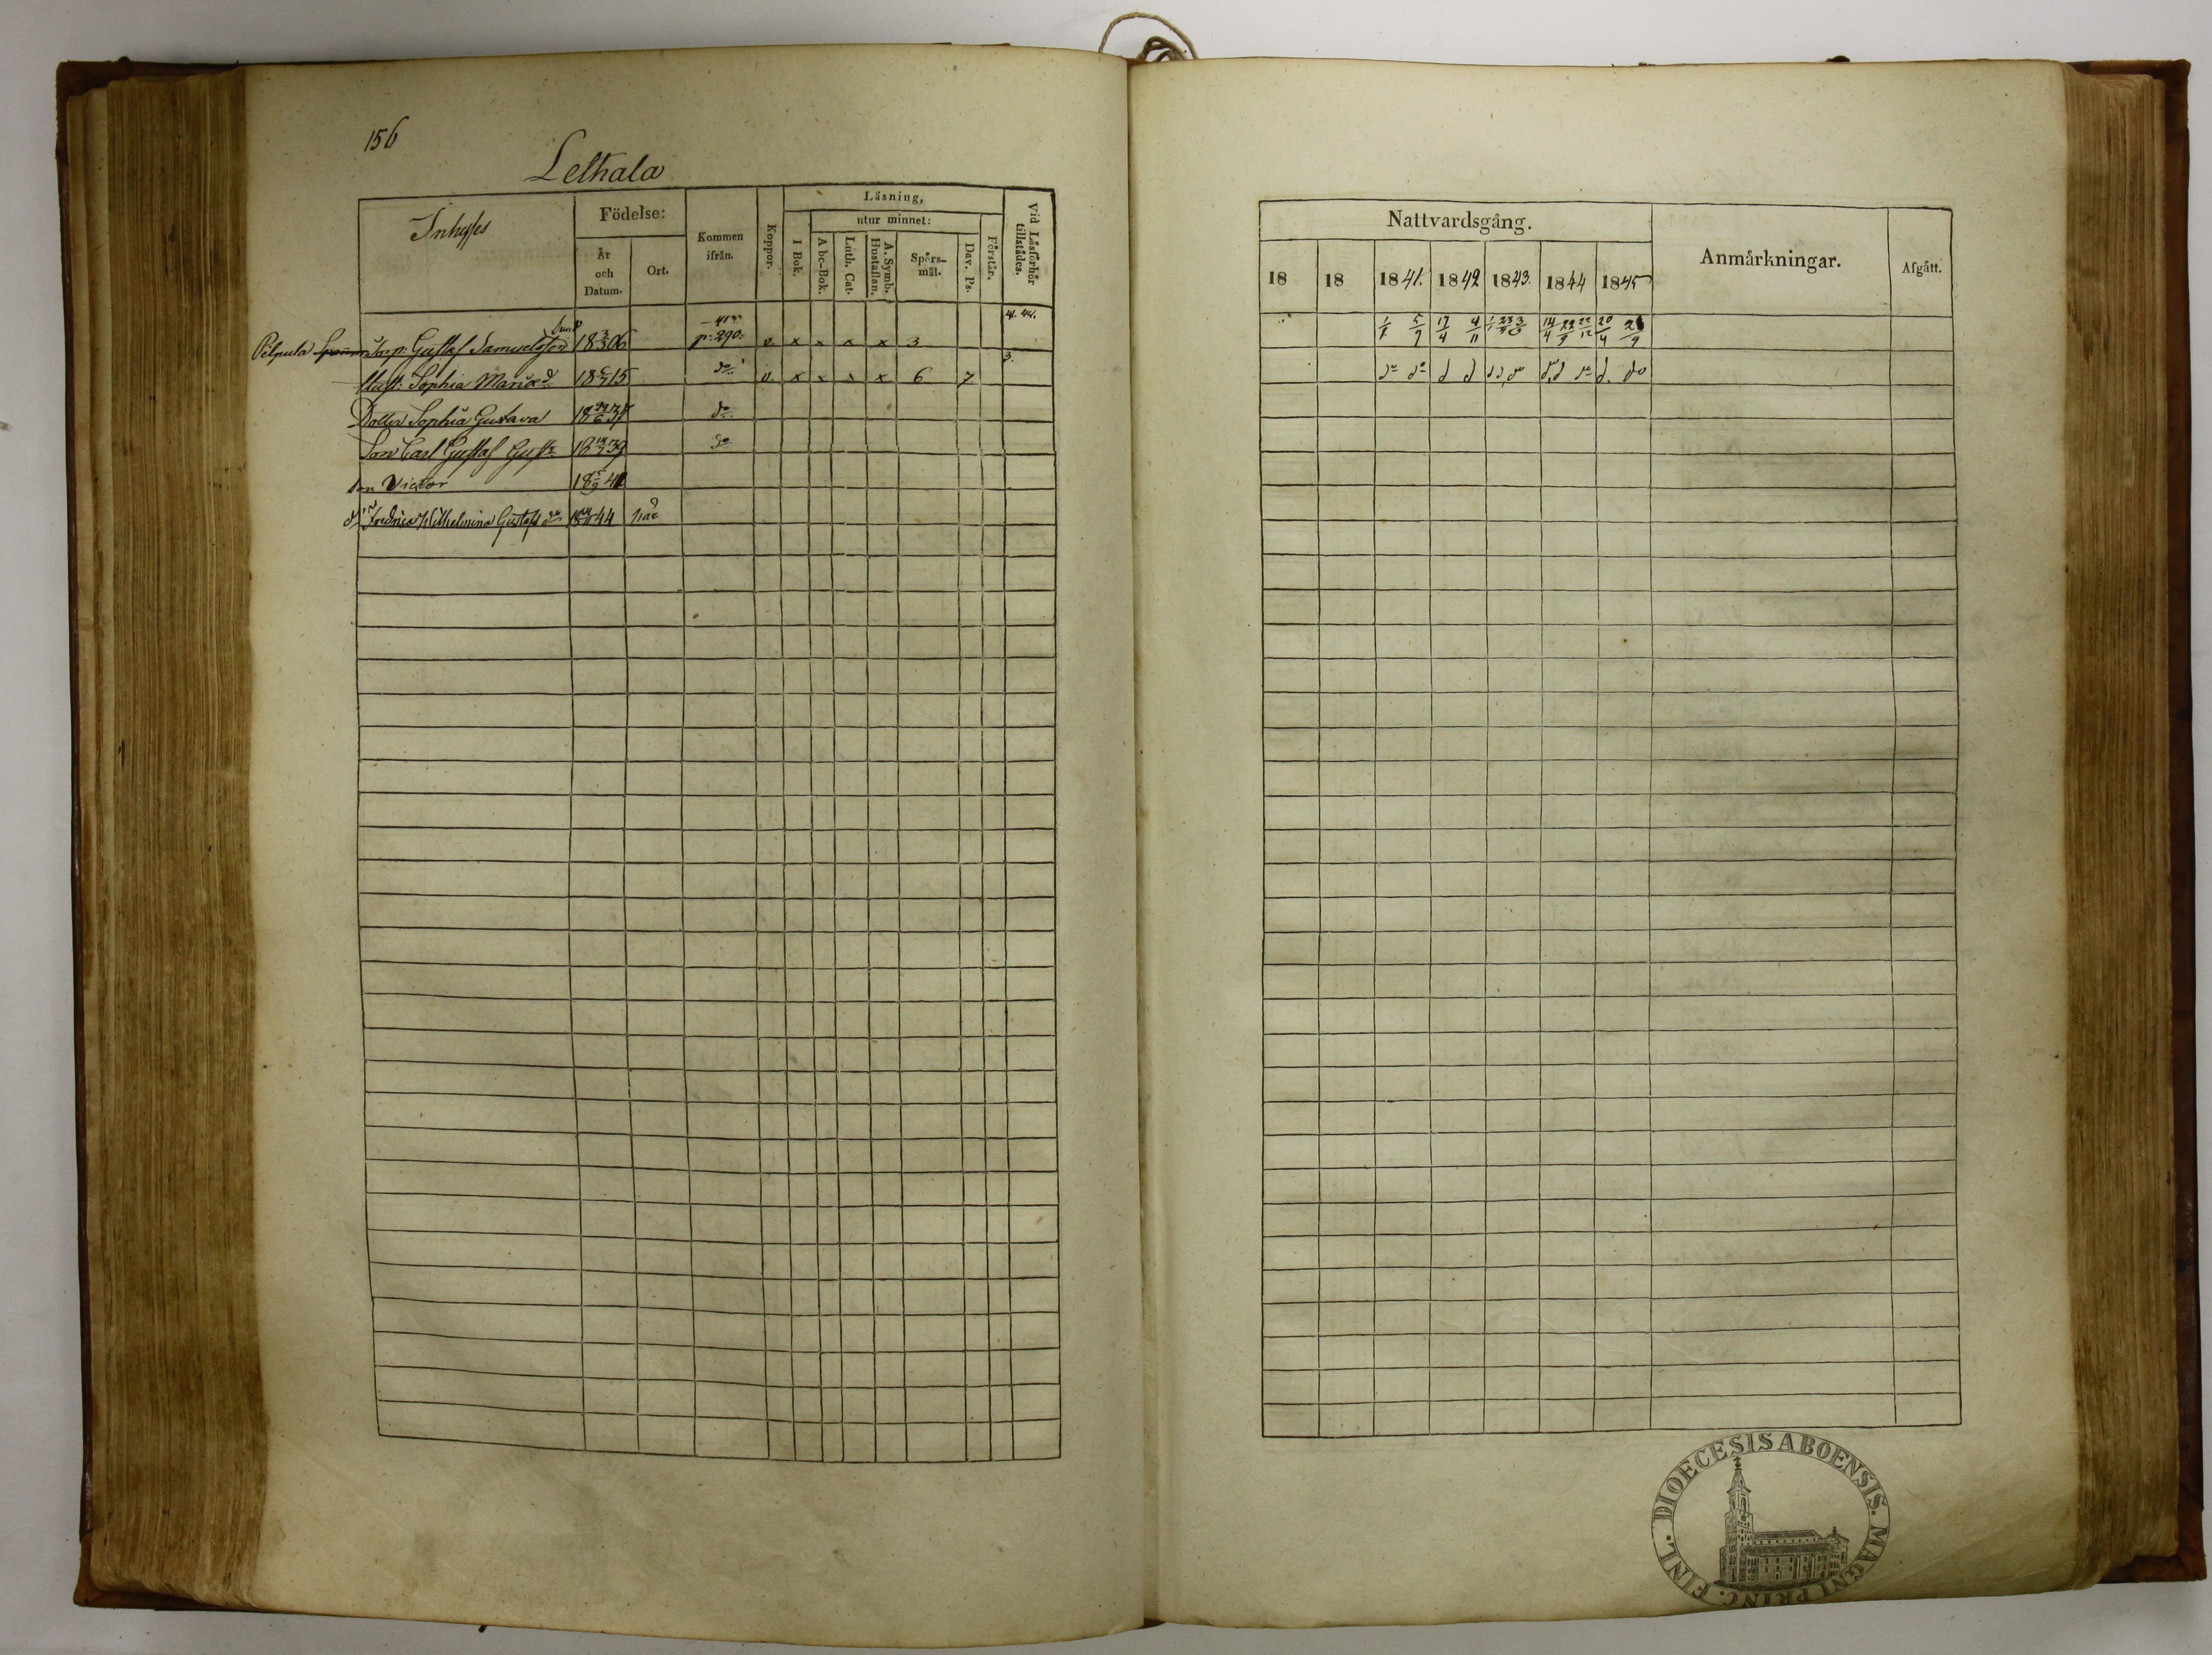 156
Lelhala
Inhyses
Födelse:
År och Datum.
Ort.
Kommen ifrån.
Koppor.
Läsning,
I Bok.
utur minnet:
Abc-Bok.
Luth. Cat.
A. Symb. Hustaflan.
Spörs- mål.
Dav. Ps.
Förstår.
Vid Läsförhör tillstädes.
Pilpula Torp. Gustaf Samuelsson 18 3/3 06 p. 290. v. x x x x 3
Hust. Sophia Mariæ d 18 15 do v. x x x x 6 7
Dotter Sophia Gustava 18 37 do
Son Carl Gustaf Gust: 18 39 do
son Victor 18 5/9 41
Fredrica Wilhelmina Gustafs dr 18 44 här
Nattvardsgång.
Anmärkningar.
Afgått.
18 18 1841. 1842 1843. 1844 1845
5/9 17/4 4/11 14/4 22/9 22/12 20/4 21/9
do do d d d d do d d do d. do
DIOECESIS ABOENSIS. MAGNI PRINC. FINL.